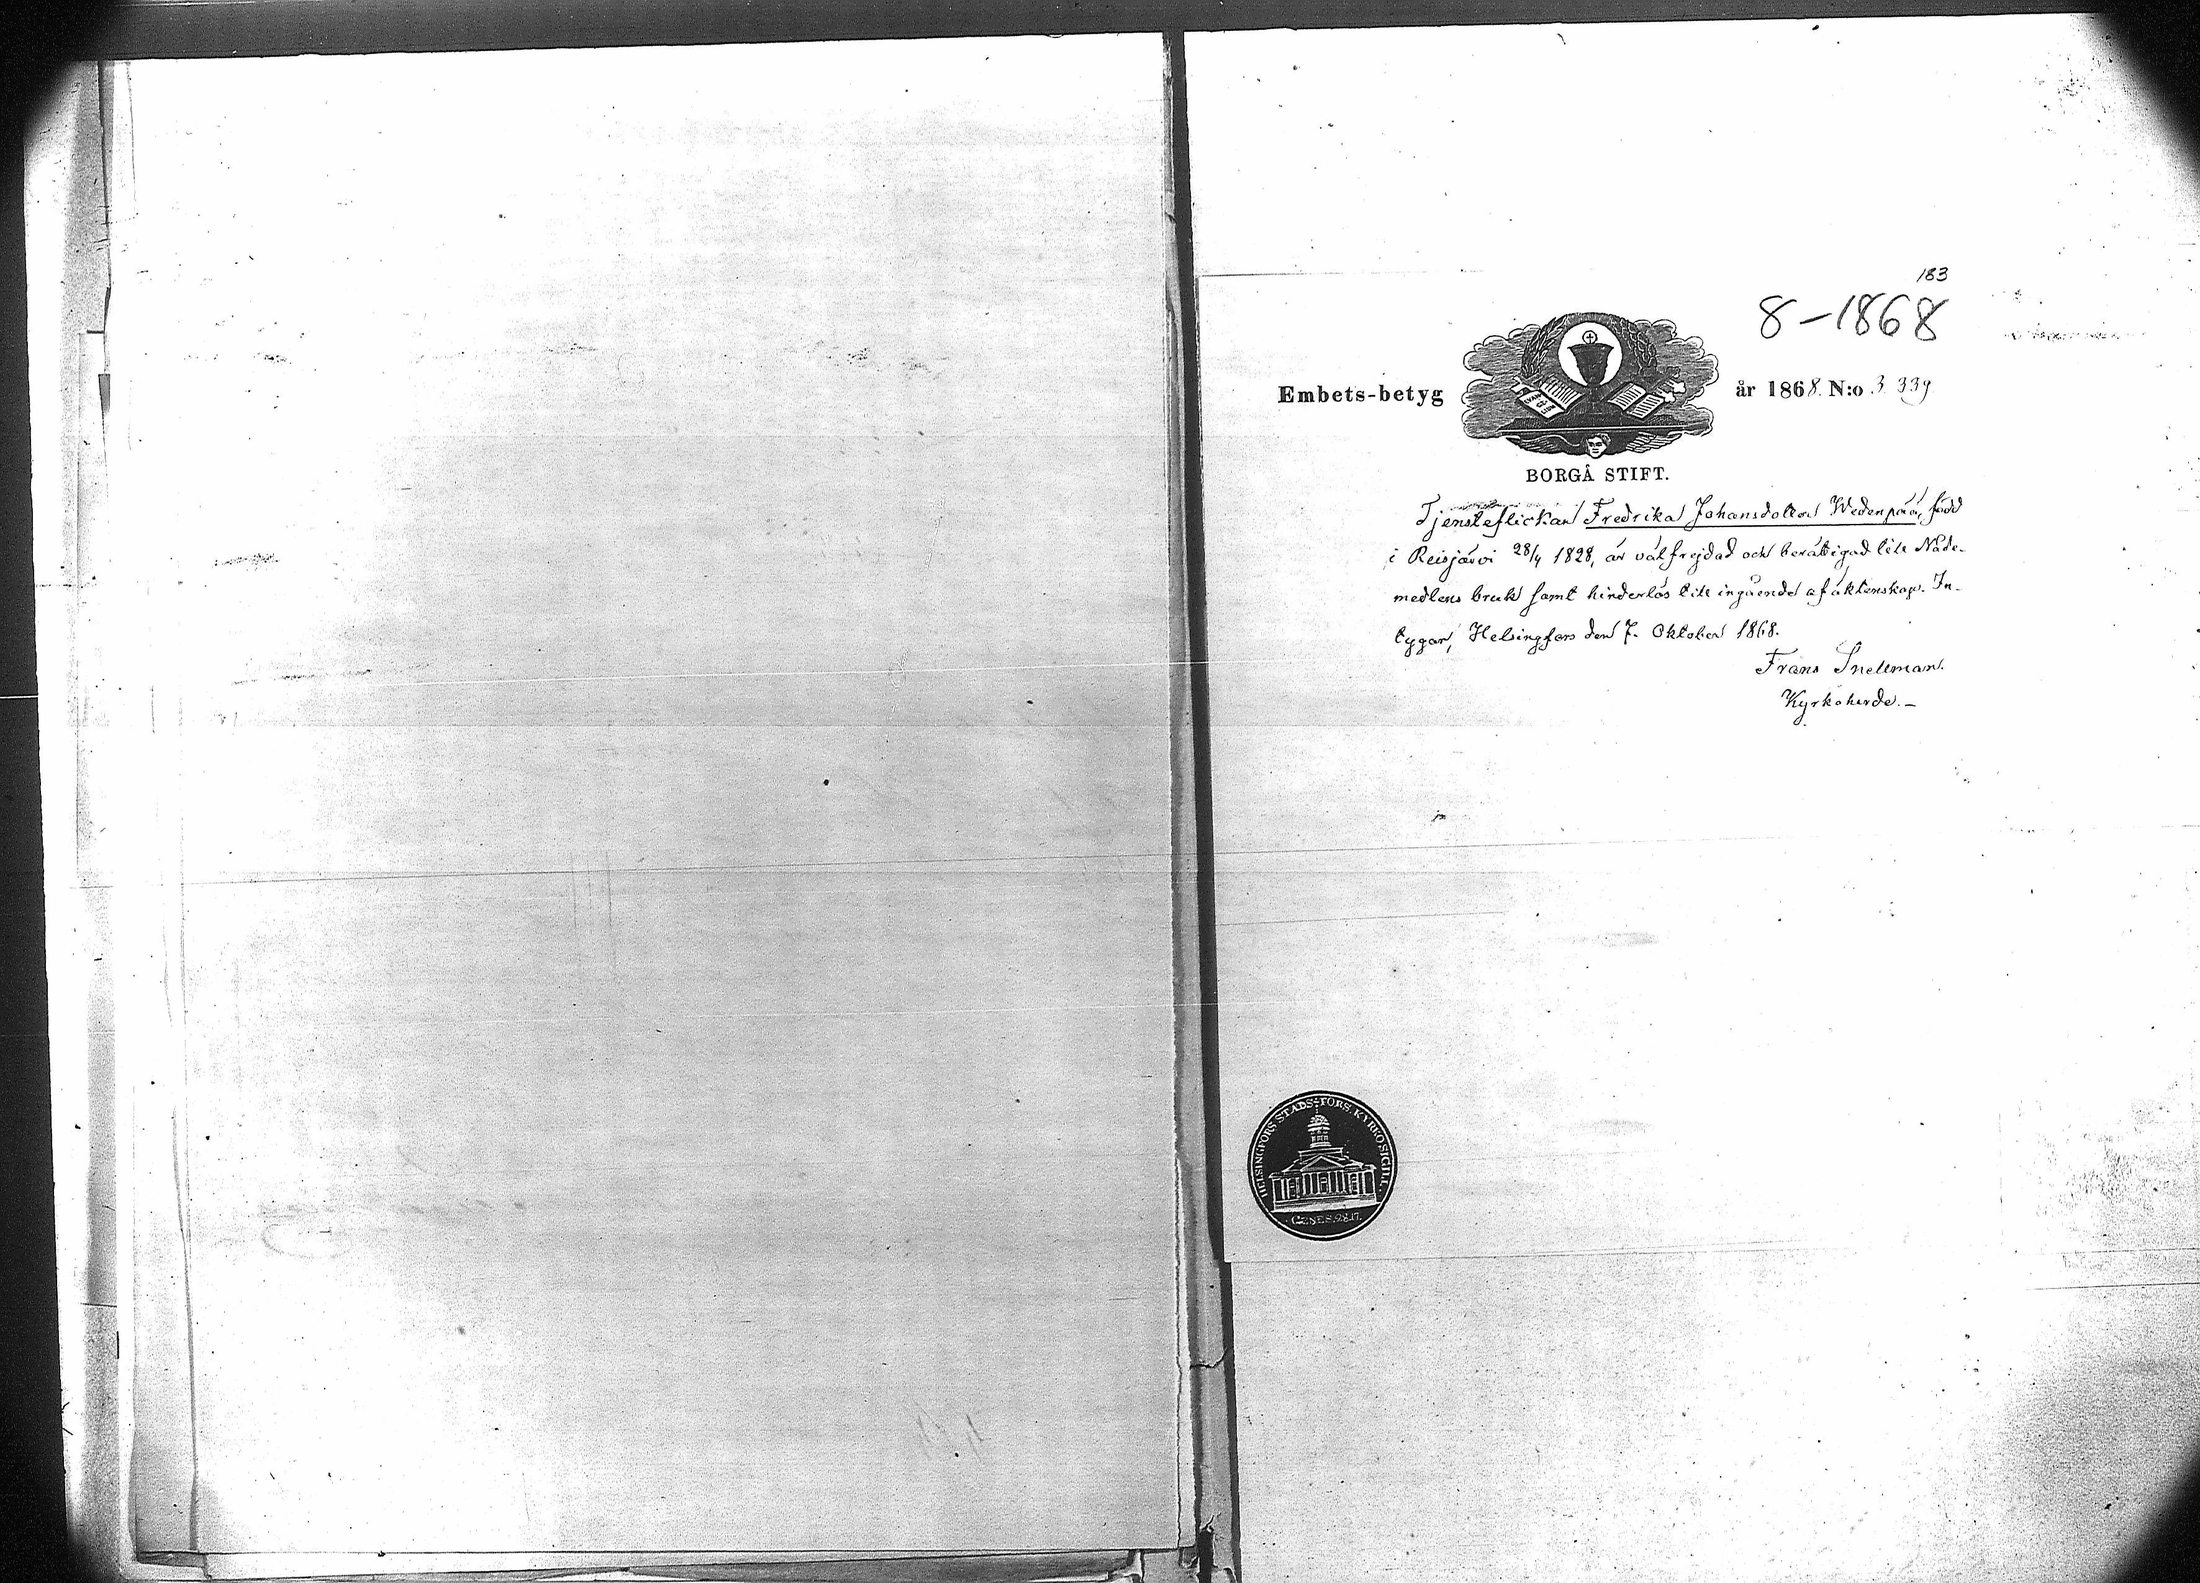 183
8-1868
Embets-betyg år 1868. N:o 3 339
BORGÅ STIFT.
Tjensteflickan Fredrika Johansdotter Wedenpää, född
i Reisjärvi 28/4 1828, är välfrejdad och berättigad till Nåde-
medlens bruk samt hinderlös till ingående af äktenskap. In-
tygar, Helsingfors den 7. Oktober 1868.
Frans Snellman.
Kyrkoherde. -
HELSINGFORS STADS-FÖRS. KYRKOSIGILL.